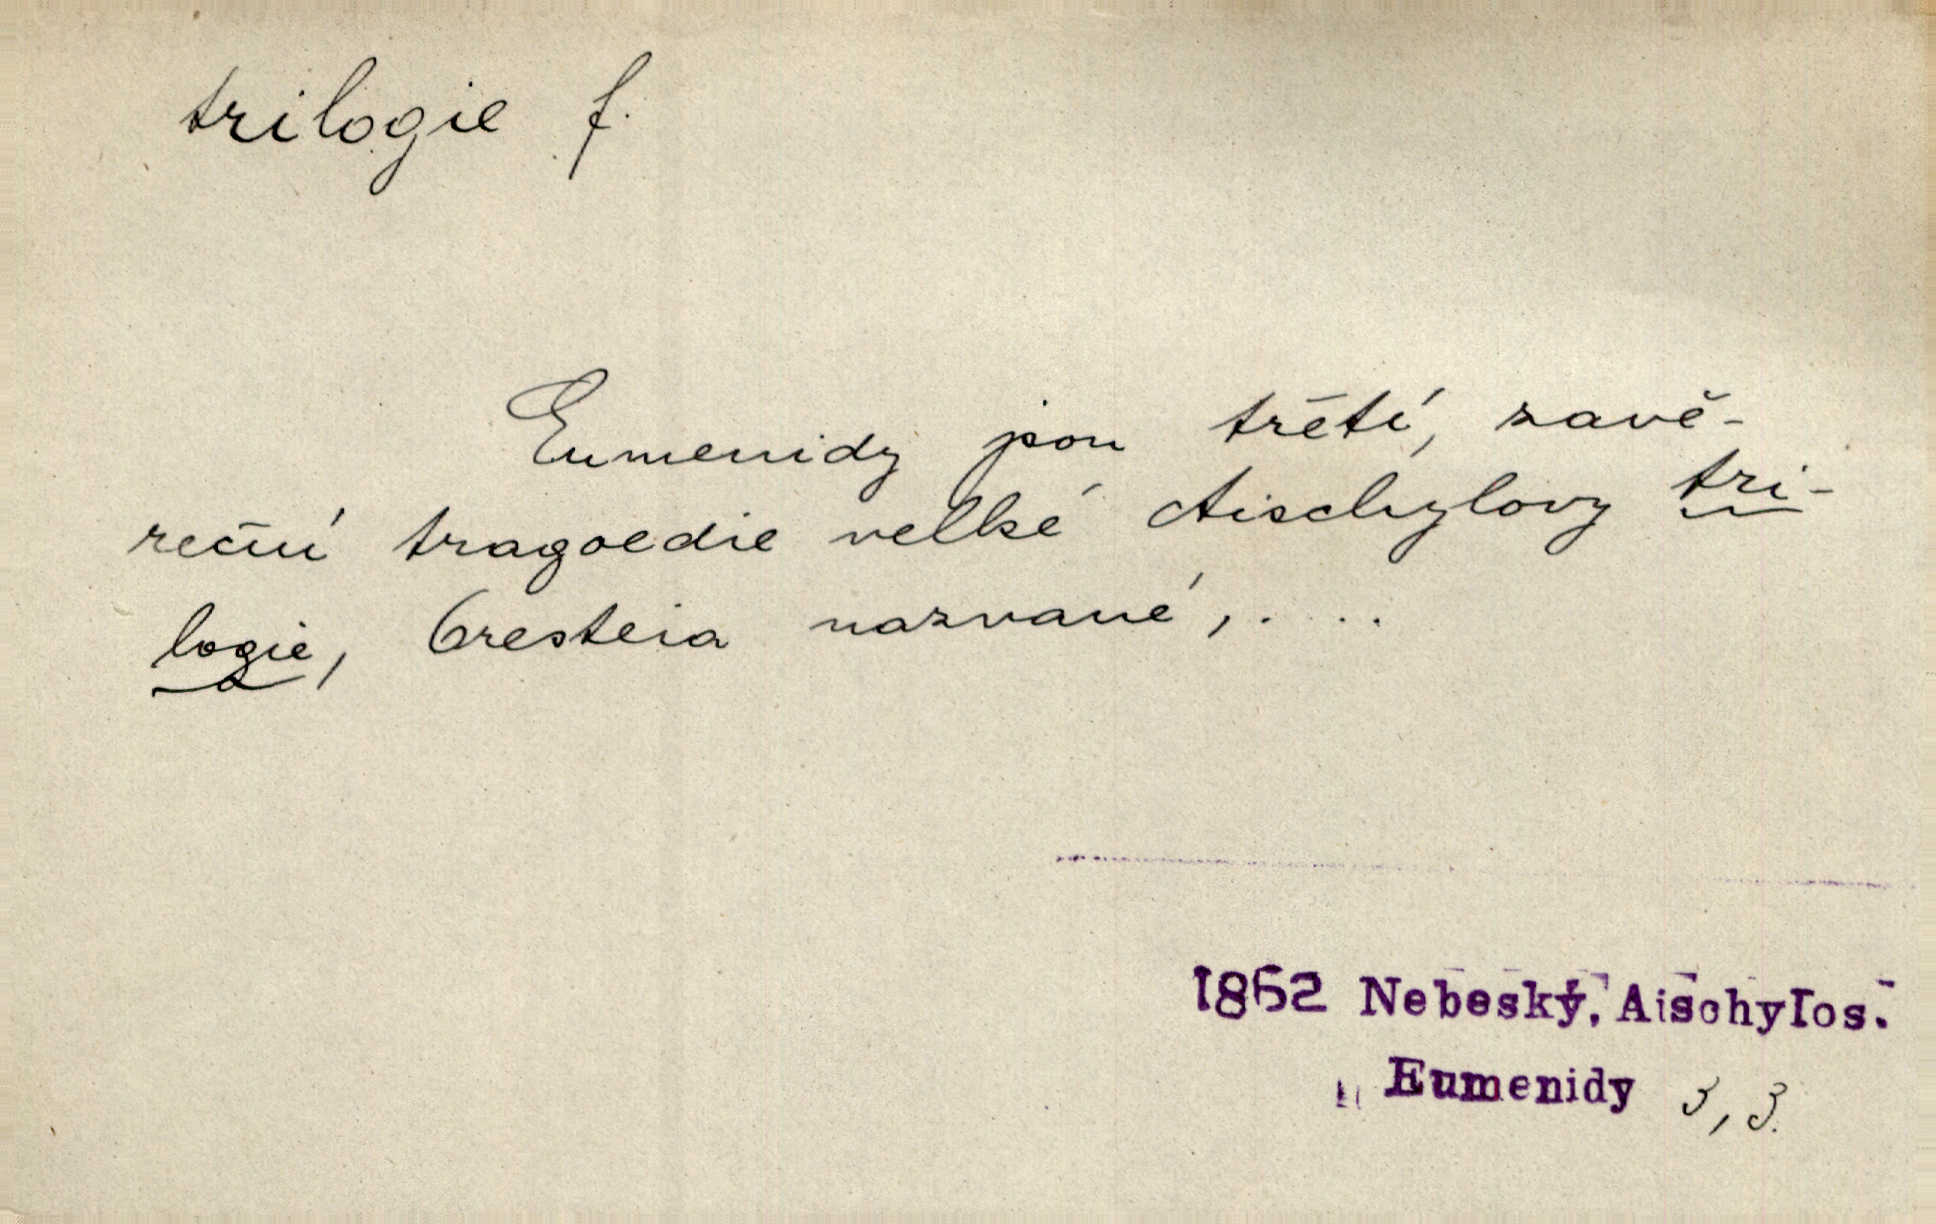 trilogie f.
Eumenidy jsou třetí, zavě-
reční tragoedie velké Aischylovy tri-
logie, Oresteia nazvané, . . .
1862 Nebeský, Aischylos.
Eumenidy 3, 3.